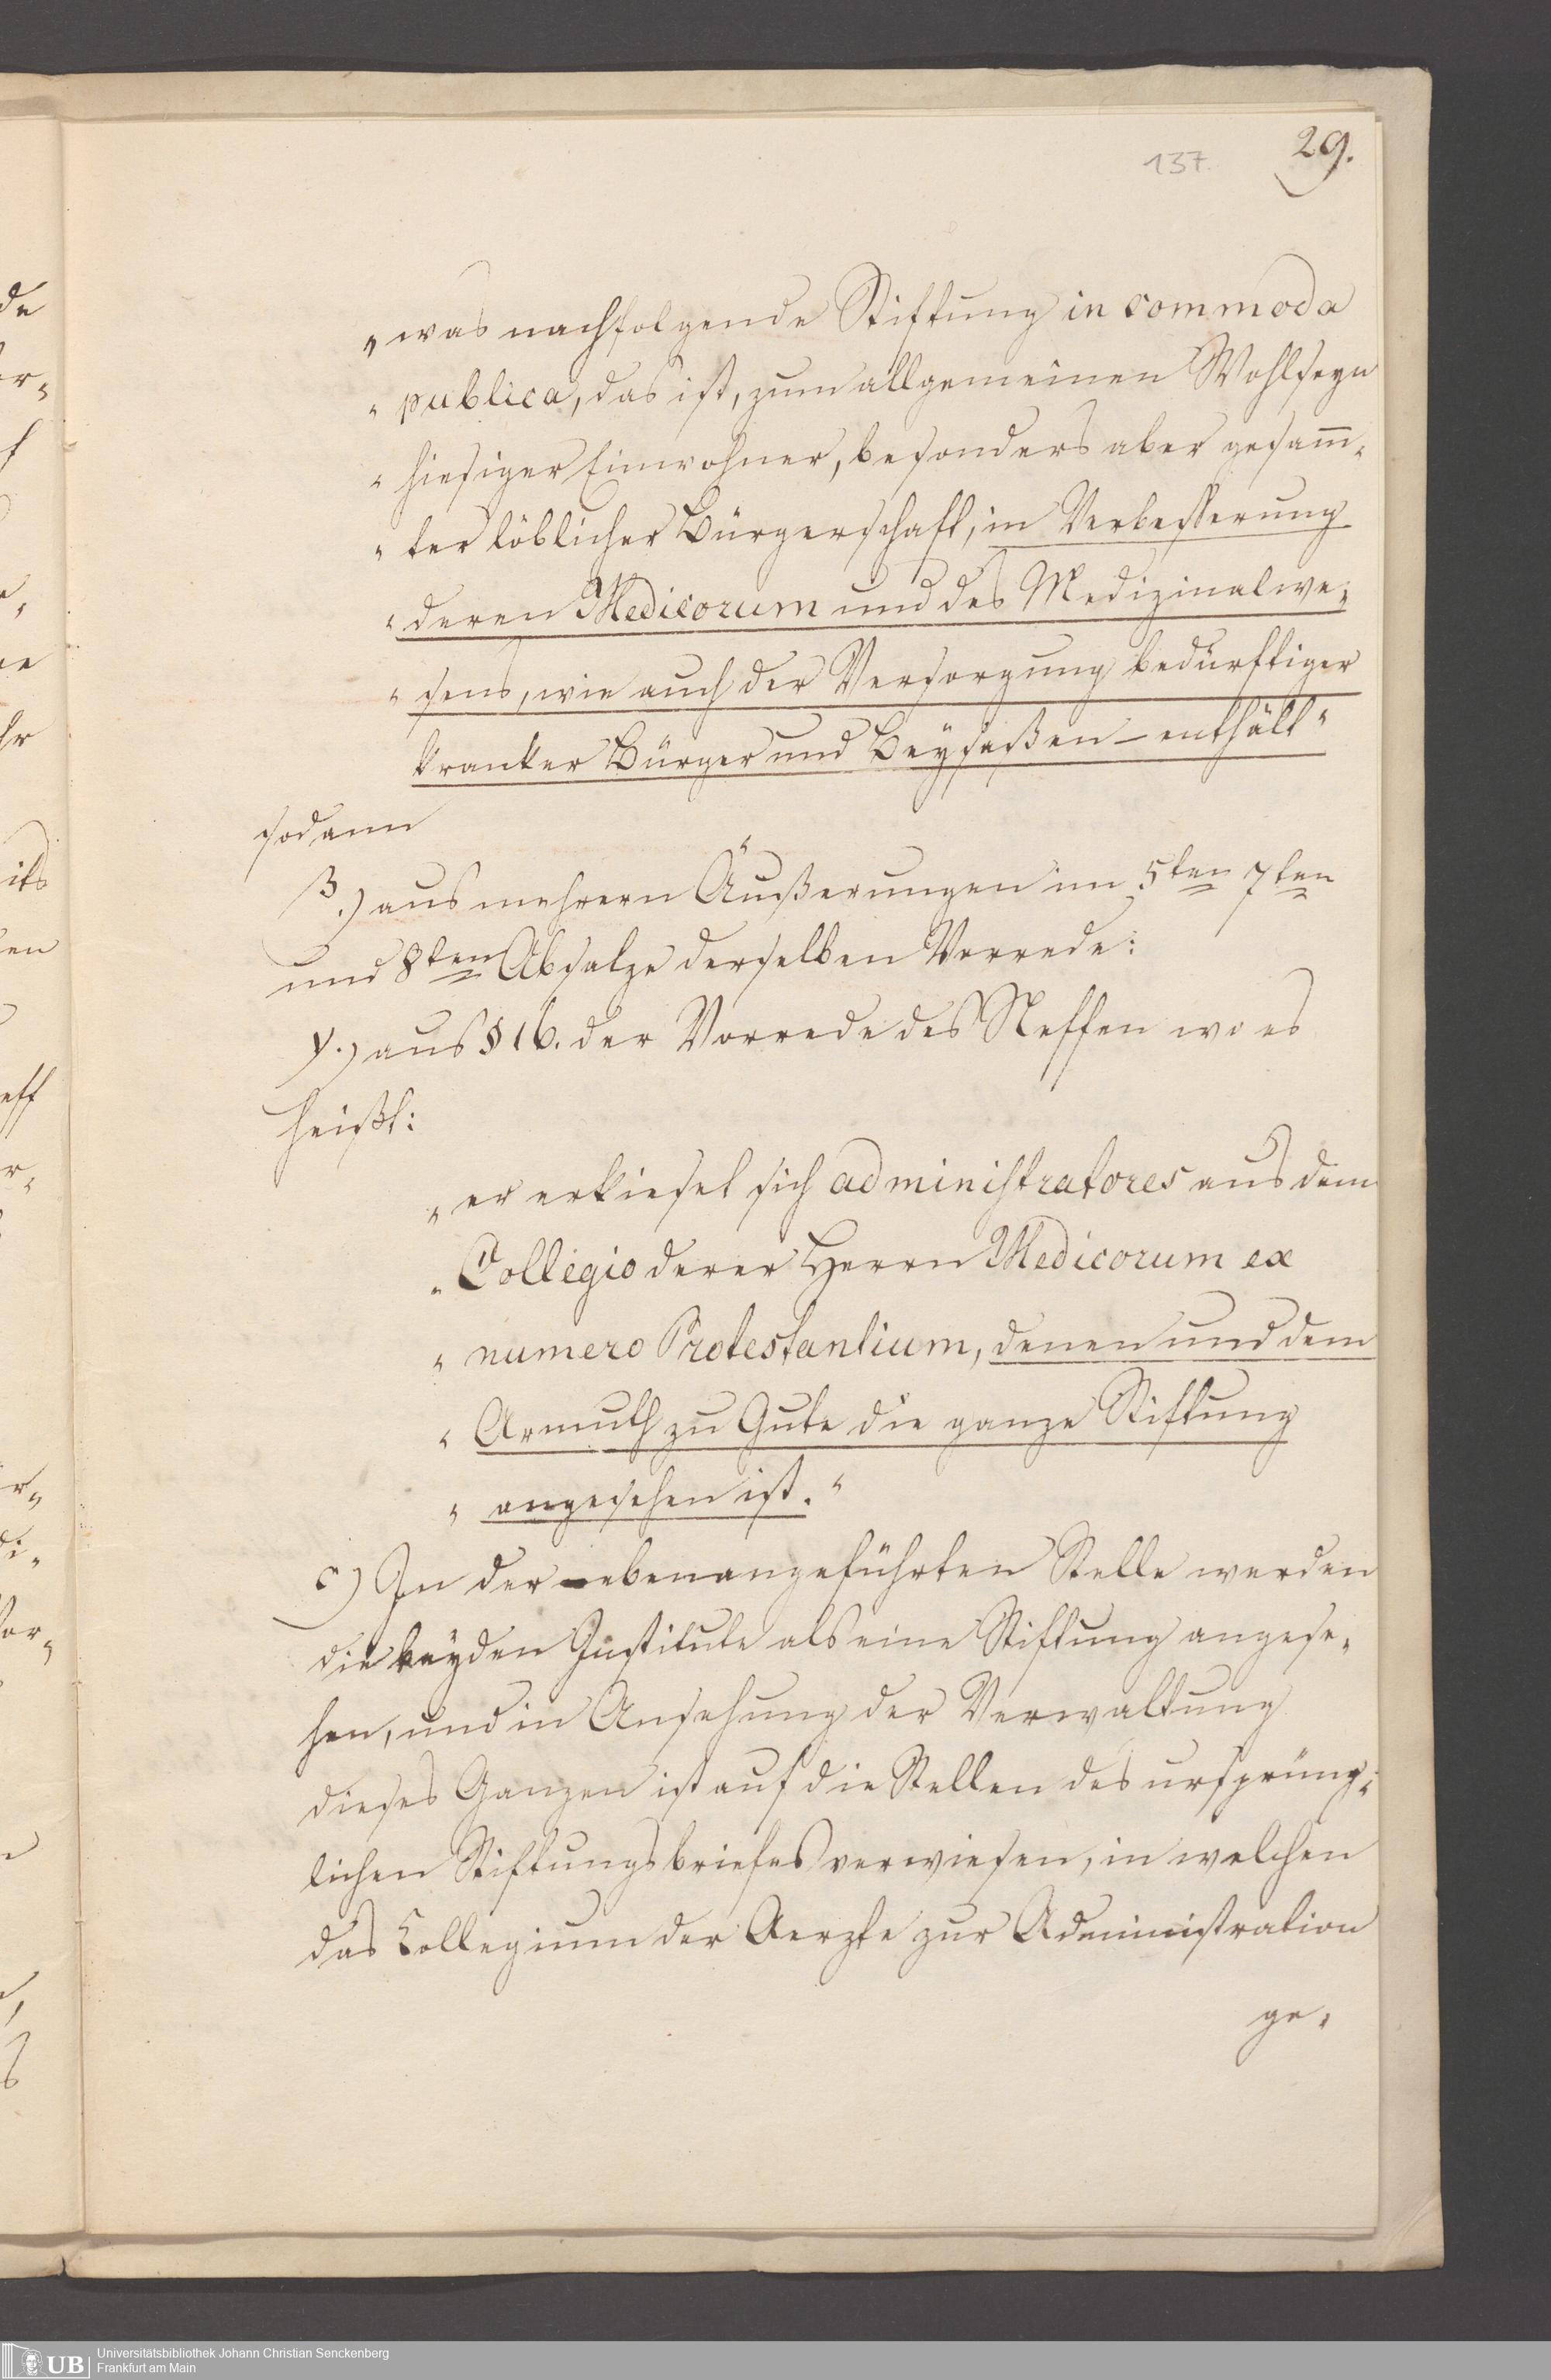 137.
29.
„ was nachfolgende Stiftung in commoda
„ publica, das ist, zum allgemeinen Wohlseyn
„ hiesiger Einwohner, besonders aber gesam̅„
„ ter löblicher Bürgerschaft, in Verbesserung
„ deren Medicorum und des Medizinalwe„
„ sens, wie auch der Versorgung bedürftiger
kranker Bürger und Beysaßen – enthält“
sodann
β.) aus mehrern Äußerungen im 5ten 7ten
und 8ten Absatze derselben Vorrede:
γ.) aus § 16. der Vorrede des Neffen wo es
heißt:
„ er erkieset sich administratores aus dem
„ Collegio derer Herrn Medicorum ex
„ numero Protestantium, denen und dem
„ Armuth zu Gute die ganze Stiftung
„ angesehen ist.“
c) In der ebenangeführten Stelle werden
die beyden Institute als eine Stiftung angese„
hen, und in Ansehung der Verwaltung
dieses Ganzen ist auf die Stellen des ursprüng„
lichen Stiftungsbriefes verwiesen, in welchen
das Collegium der Aerzte zur Administration
ge„
UB
Universitätsbibliothek Johann Christian Senckenberg
Frankfurt am Main